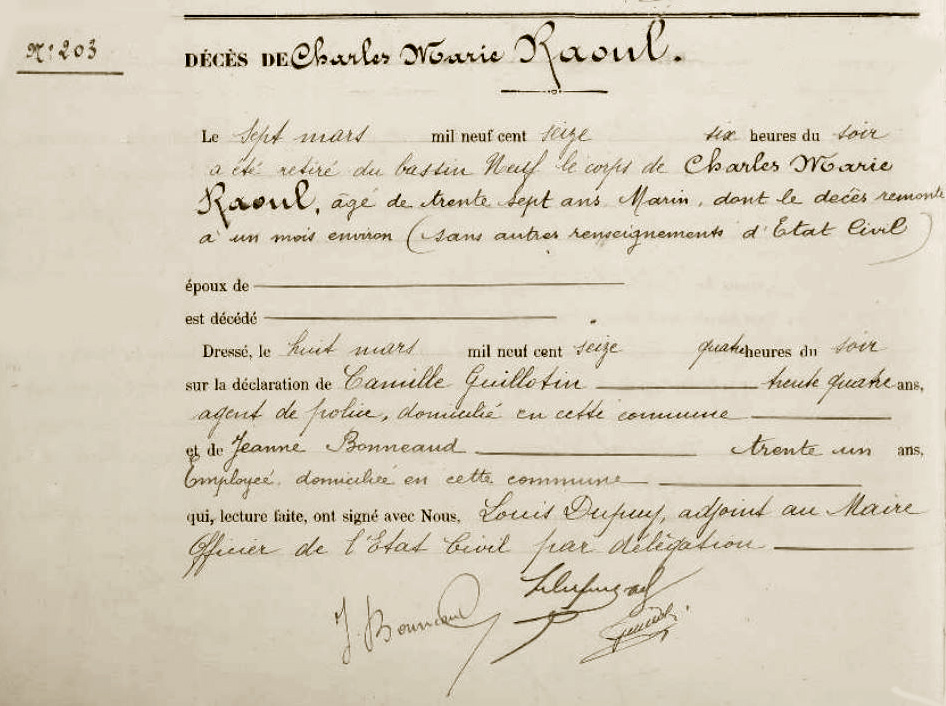 N° 203
DÉCÈS DE Charles Marie Raoul.
Le sept mars mil neuf cent seize six heures du soir
a été retiré du bassin Neuf le corps de Charles Marie
Raoul, âgé de trente sept ans, Marin, dont le décès remonte
à un mois environ (sans autres renseignements d'Etat Civil)
époux de
est décédé
Dressé, le huit mars mil neuf cent seize quatre heures du soir
sur la déclaration de Camille Guillotin trente quatre ans,
agent de police, domicilié en cette commune
et de Jeanne Bonneaud trente un ans,
Employée, domiciliée en cette commune
qui, lecture faite, ont signé avec Nous, Louis Dupuy, adjoint au Maire
Officier de l'Etat Civil par délégation
J. Bonneaud